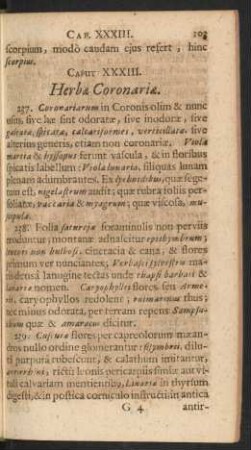 CAP. XXXIII. 103
scorpium, modò caudam ejus refert, hinc
scorpius.
CAPUT XXXIII.
Herbæ Coronariæ.
237. Coronariarum in Coronis olim & nunc
usus, sive hæ sint odoratæ, sive inodoræ, sive
galeatæ, spicatæ, calcariformes, verticillatæ, sive
alterius generis, etiam non coronariæ. Viola
marita & hyssopus ferunt vascula, & in floribus
spicatis labellum: Viola lunaria, siliquas lunam
plenam adumbrantes. Ex quæ sege-
tum est, nigelastrum audit; quæ rubra foliis per-
foliatæ, vaccaria & myagrum; quæ viscosa, mus-
cipula.
238. Folia satureja foraminulis non pervia
induntur; montanæ adnascitur epithymum;
bulbosi. Cineracia & cana, & flores
primum ver nunciantes,
lanugine tectas unde barbati &
lunaria nomen. Caryophylli flores seu Arme-
rii, caryophyllos redolent; rosmarinus thus;
nec minus odorata, per terram repens Sampsu-
chum quæ & amaracus dicitur.
239. Cuscuta flores per capreolorum mæan-
dros nullo ordine glomerantur: sisymbrii, dilu-
ti purpura rubescunt, & calathum imitantur,
antirrhini, rictu leonis pericarpiis simiæ aut vi-
tuli calvariam mentientibus, Linaria in thyrsum
digesti, & in postica corniculo instructi in antica
G 4 antir-